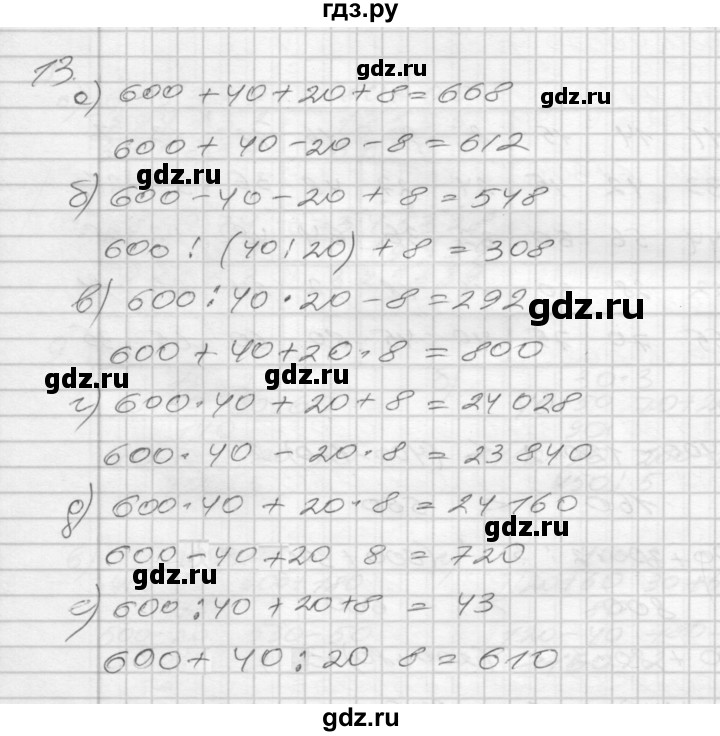 гдз.ру
13.
а) 600 + 40 + 20 + 8 = 668
gdz.ru
gdz.ru
600 + 40 - 20 - 8 = 612
gdz.ru
б) 600 - 40 - 20 + 8 = 548
600 : (40 : 20) + 8 = 308
в) 600 : 40 · 20 - 8 = 292
gdz.ru
600 + 40 + 20 · 8 = 800
gdz.ru
gdz.ru
г) 600 · 40 + 20 + 8 = 24 028
600 · 40 - 20 · 8 = 23 840
д) 600 · 40 + 20 · 8 = 24 160
gdz.ru
600 - 40 + 20 8 = 720
gdz.ru
е) 600 : 40 + 20 + 8 = 43
600 + 40 : 20 8 = 610
gdz.ru